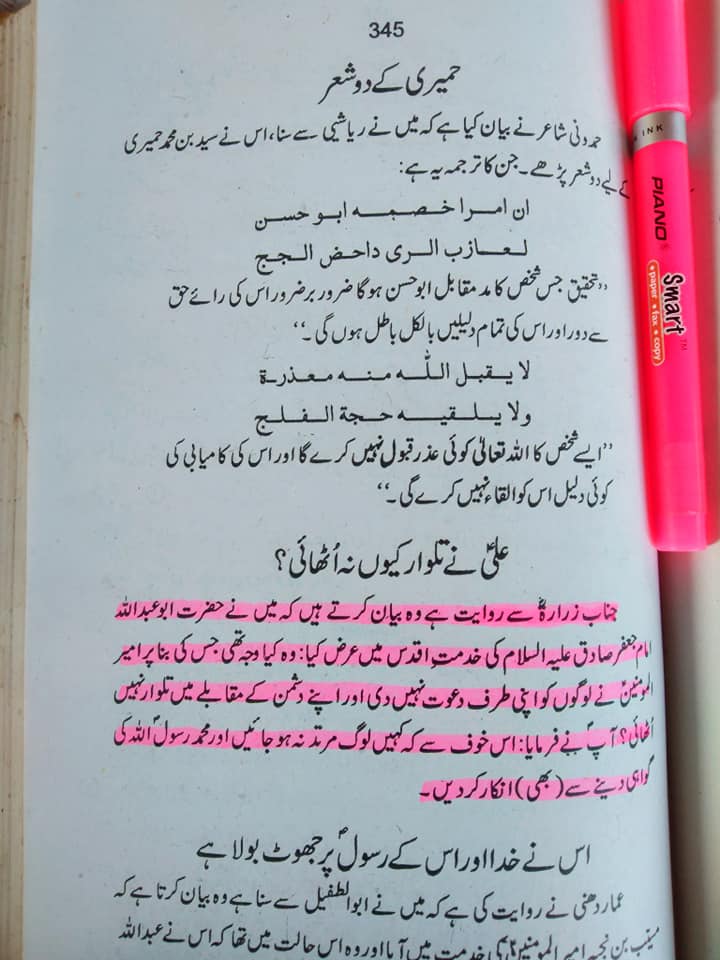 345
حمیری کے دو شعر
حمدونی شاعر نے بیان کیا ہے کہ میں نے ریاشیی سے سنا، اس نے سید بن محمد حمیری
کے لیے دو شعر پڑھے۔ جن کا ترجمہ یہ ہے:
ان امرا خصمه ابو حسن
لعازب الری داحض الحجج
”تحقیق جس شخص کا مد مقابل ابوحسن ہوگا ضرور بر ضرور اس کی رائے حق
سے دور اور اس کی تمام دلیلیں بالکل باطل ہوں گی۔“
لا یقبل اللّٰه منه معذرة
ولا یلقیه حجة الفلج
”ایسے شخص کا اللہ تعالیٰ کوئی عذر قبول نہیں کرے گا اور اس کی کامیابی کی
کوئی دلیل اس کو القاء نہیں کرے گی۔“
علیؑ نے تلوار کیوں نہ اُٹھائی؟
جناب زرارہؓ سے روایت ہے وہ بیان کرتے ہیں کہ میں نے حضرت ابو عبداللہ
امام جعفر صادق علیہ السلام کی خدمتِ اقدس میں عرض کیا: وہ کیا وجہ تھی جس کی بنا پر امیر
المومنینؑ نے لوگوں کو اپنی طرف دعوت نہیں دی اور اپنے دشمن کے مقابلے میں تلوار نہیں
اُٹھائی؟ آپؑ نے فرمایا: اس خوف سے کہ کہیں لوگ مرتد نہ ہو جائیں اور محمد رسولؐ اللہ کی
گواہی دینے سے (بھی) انکار کر دیں۔
اس نے خدا اور اس کے رسولؐ پر جھوٹ بولا ہے
عمار دھنی نے روایت کی ہے کہ میں نے ابوالطفیل سے سنا ہے وہ بیان کرتا ہے کہ
مسیب بن نجبہ امیر المومنینؑ کی خدمت میں آیا اور وہ اس حالت میں تھا کہ اس نے عبداللہ
INK
PIANO
Smart™
• paper • fax • copy